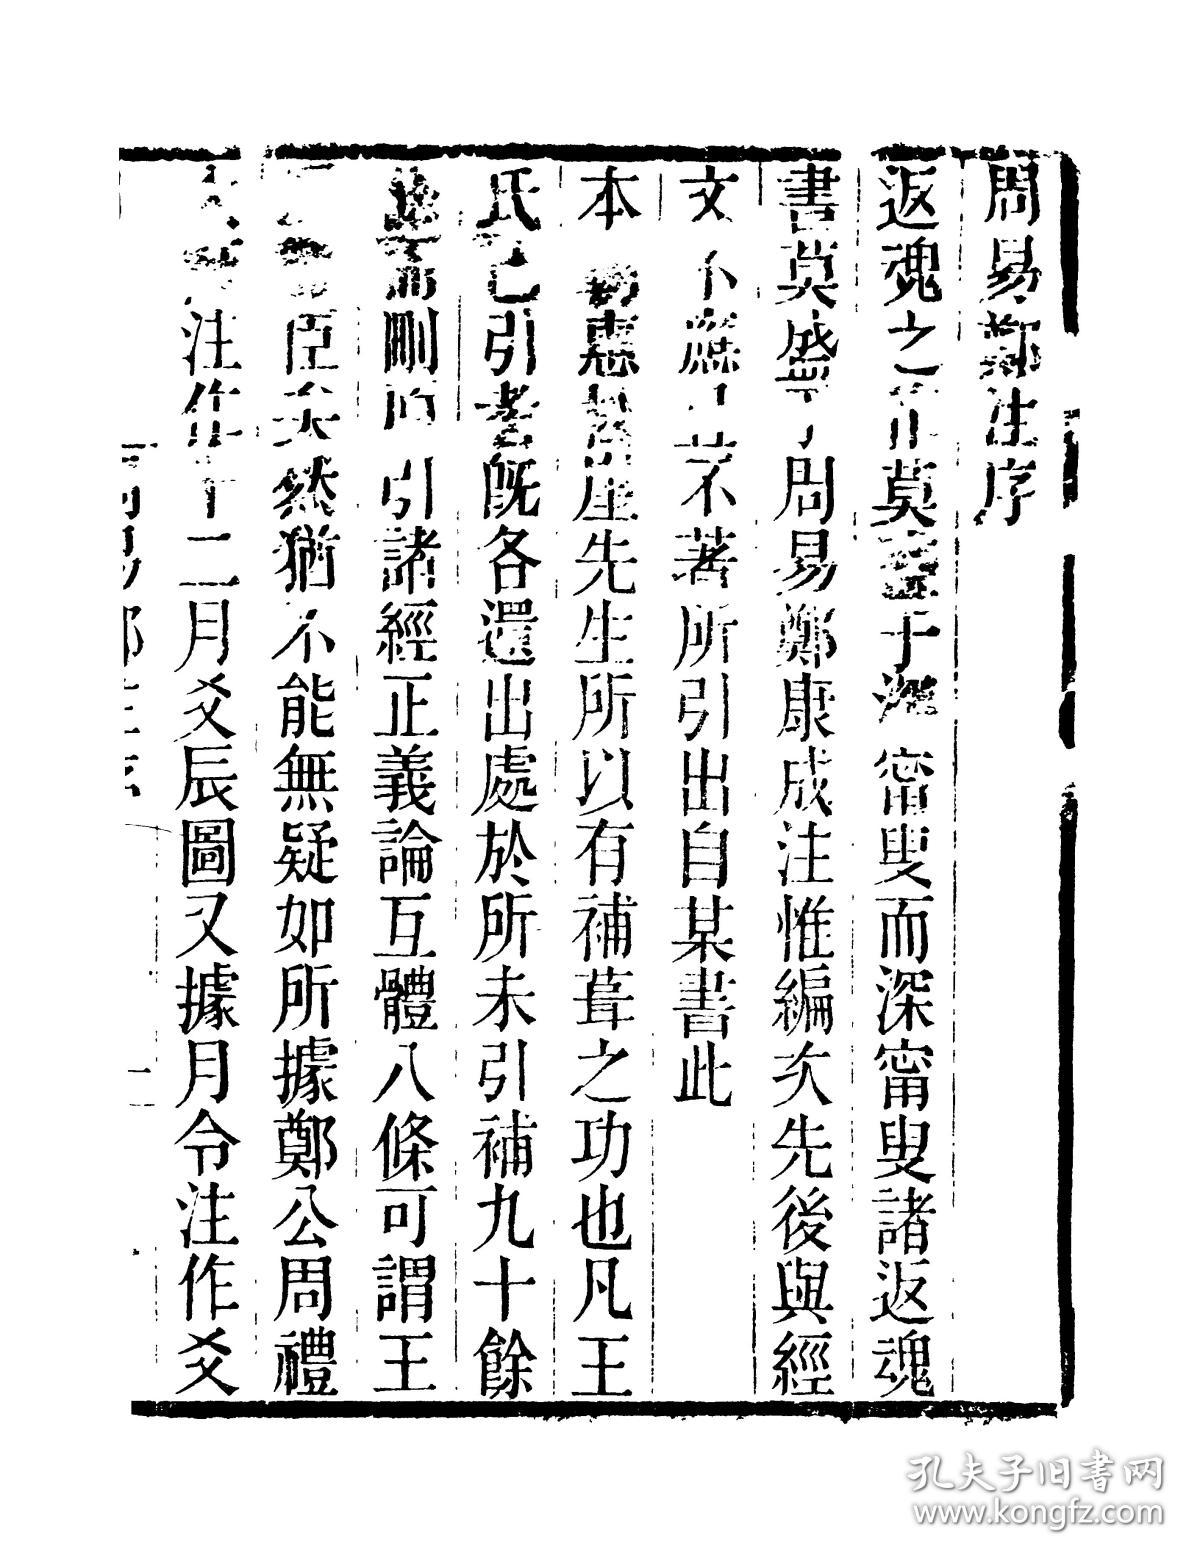 周易鄭注序
返魂之莫于甯叟而深甯叟諸返魂
書莫盛于周易鄭康成注惟編次先後與經
文不應又不著所引出自某書此
本惠松崖先生所以有補葺之功也凡王
氏已引者既各還出處於所未引補九十餘
刪所引諸經正義論互體八條可謂王
臣矣然猶不能無疑如所據鄭公周禮
注作十二月爻辰圖又據月令注作爻
周易鄭注序
一
孔夫子旧书网
www.kongfz.com